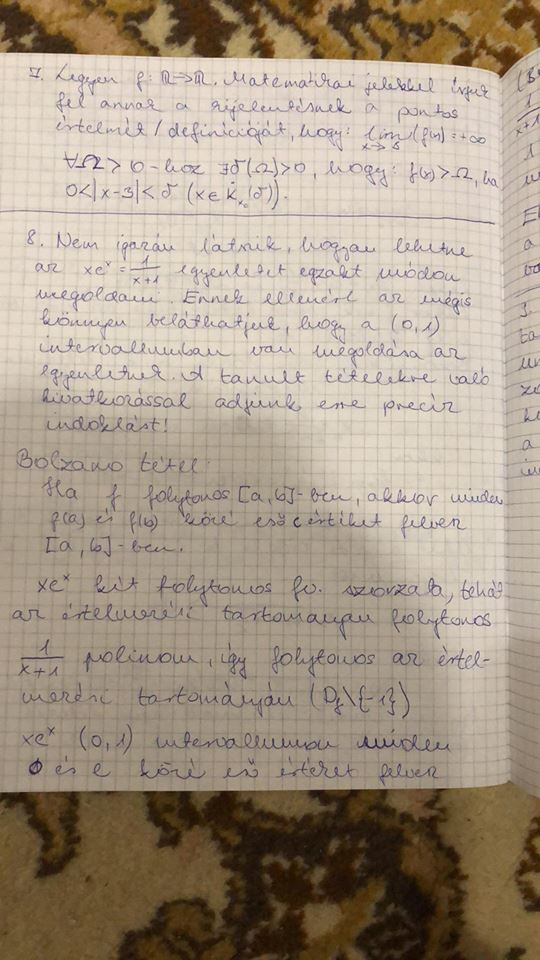 7. Legyen f: ℝ→ℝ. Matematikai jelekkel írjuk
fel annak a kijelentésnek a pontos
értelmét/definícióját, hogy: lim f(x) = +∞
x→3
∀Ω>0-hoz ∃δ(Ω)>0, hogy: f(x)>Ω, ha
0<|x-3|<δ (x∈K̇ₓ₀(δ)).
8. Nem igazán látszik, hogyan lehetne
az xeˣ = 1/(x+1) egyenletet egzakt módon
megoldani. Ennek ellenére az mégis
könnyen beláthatjuk, hogy a (0,1)
intervallumban van megoldása az
egyenletnek. A tanult tételekre való
hivatkozással adjunk erre precíz
indoklást!
Bolzano tétel:
Ha f folytonos [a,b]-ben, akkor minden
f(a) és f(b) közé eső c értéket felvesz
[a,b]-ben.
xeˣ két folytonos fv. szorzata, tehát
az értelmezési tartományán folytonos
1/(x+1) polinom, így folytonos az értel-
mezési tartományán (D_f\{-1})
xeˣ (0,1) intervallumon minden
0 és e közé eső értéket felvesz
(B
1
x+1
1
E
a
3.
ta
a